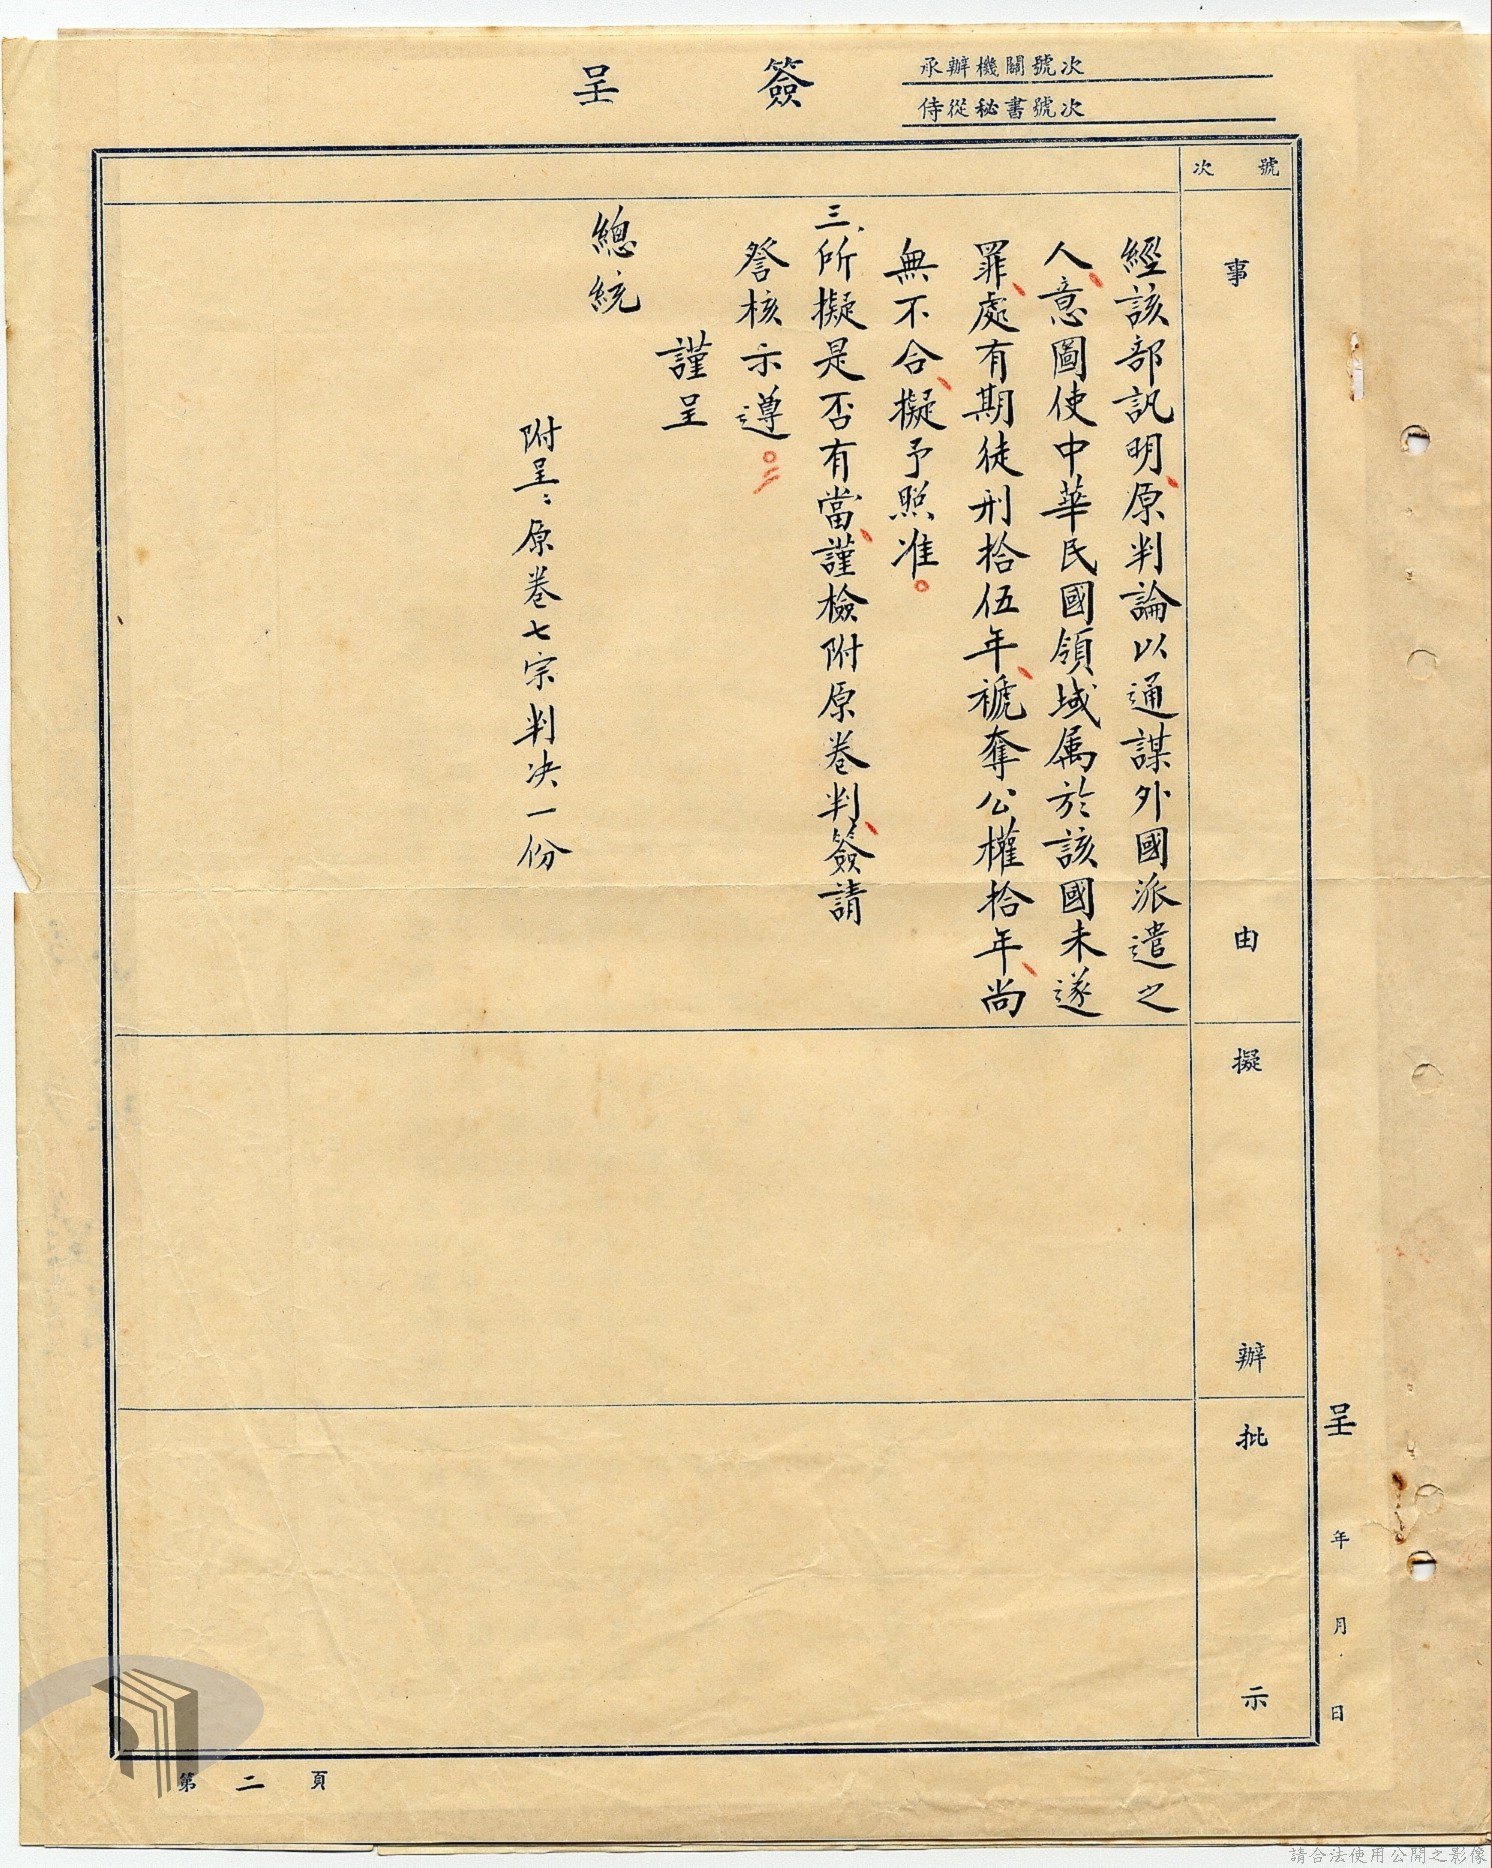 簽呈
承辦機關號次
侍從秘書號次
號次
事由
擬辦
批示
經該部訊明、原判論以通謀外國派遣之
人、意圖使中華民國領域屬於該國未遂
罪、處有期徒刑拾伍年、褫奪公權拾年、尚
無不合、擬予照准。
三、所擬是否有當、謹檢附原卷判、簽請
詧核示遵。
謹呈
總統
附呈：原卷七宗判決一份
呈 年 月 日
第二頁
請合法使用公開之影像